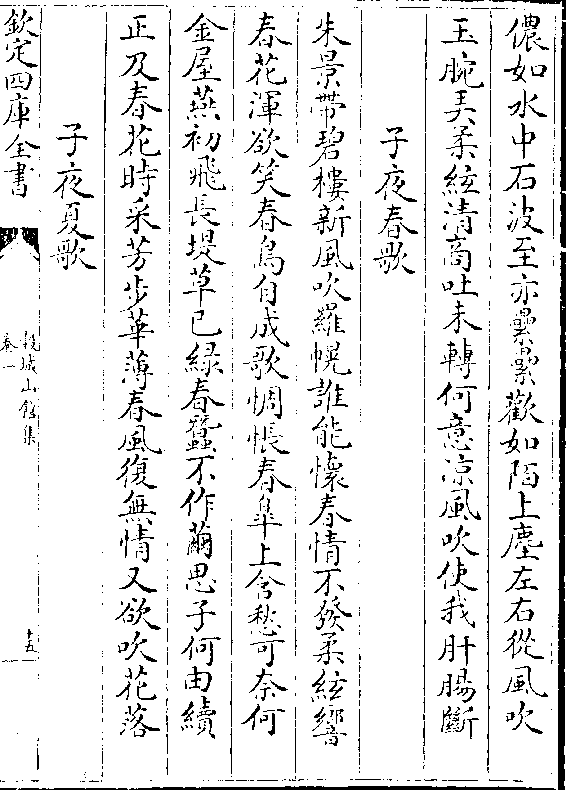 儂如水中石波至亦纍纍歡如陌上塵左右從風吹
玉腕弄柔絃清商吐未轉何意凉風吹使我肝腸斷
子夜春歌
朱景帶碧樓新風吹羅幌誰能懷春情不發柔絃響
春花渾欲笑春鳥自成歌惆悵春臯上含愁可奈何
金屋燕初飛長堤草已緑春蠶不作繭思子何由續
正及春花時采芳步華薄春風復無情又欲吹花落
子夜夏歌
欽定四庫全書
穀城山館集
卷一
十五